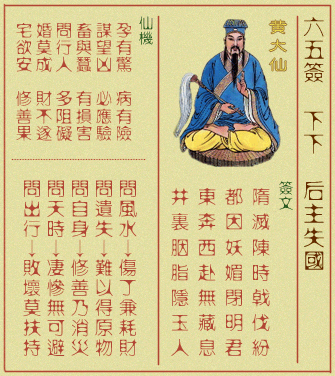 六五簽 下下 后主失國
黄大仙
簽文
隋滅陳時戟伐紛
都因妖媚閉明君
東奔西赴無藏息
井裏胭脂隱玉人
仙機
孕有驚 病有險
謀望凶 必應驗
畜與蠶 有損害
問行人 多阻礙
婚莫成 財不遂
宅欲安 修善果
問風水↓傷丁兼耗財
問遺失↓難以得原物
問自身↓修善乃消災
問天時↓凄慘無可避
問出行↓敗壞莫扶持